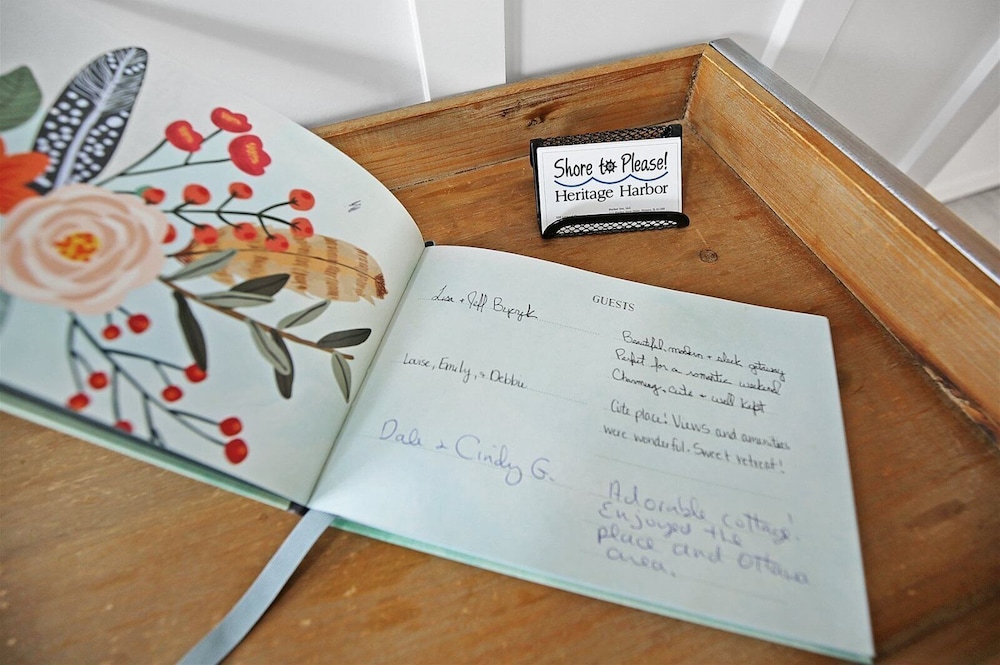 Shore to Please!
Heritage Harbor
GUESTS
Lisa + Jeff
Beautiful, modern + sleek getaway
Perfect for a romantic weekend
Charming, cute + well kept
Louise, Emily, + Debbie
Cute place! Views and amenities
were wonderful. Sweet retreat!
Dale + Cindy G.
Adorable cottage!
Enjoyed the
place and Ottawa
area.